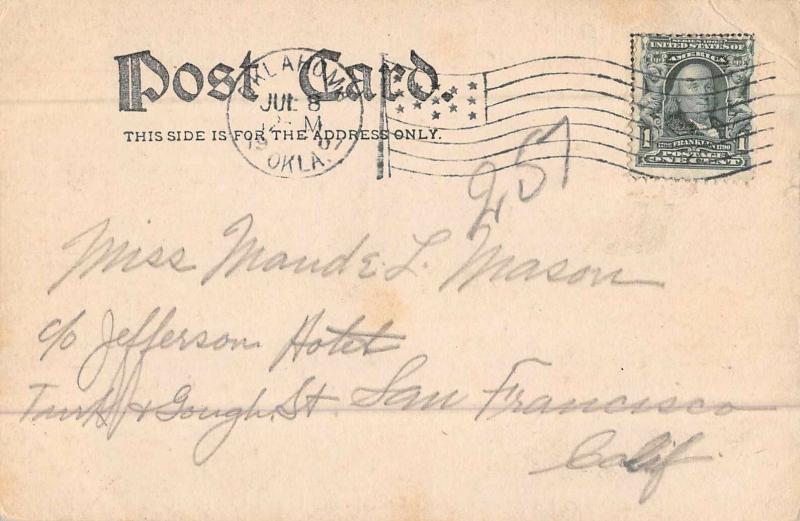 Post Card.
THIS SIDE IS FOR THE ADDRESS ONLY.
OKLAHOMA
JUL 8
M
1907
OKLA.
SERIES 1902
UNITED STATES OF
AMERICA
1 1706 FRANKLIN 1790 1
POSTAGE
ONE CENT
257
Miss Maude L. Mason
c/o Jefferson Hotel
Turk & Gough St San Francisco
Calif